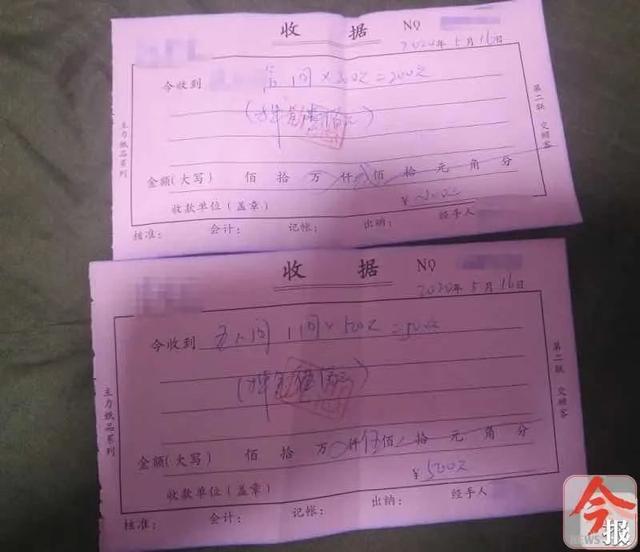 收 据 NO
2020年5月16日
今收到 1间×200元=200元
金额(大写) 佰 拾 万 仟 贰佰 拾 元 角 分
¥200元
收款单位(盖章)
核准: 会计: 记帐: 出纳: 经手人
主力纸品系列
第二联 交顾客
收 据 NO
2020年5月16日
今收到 五人间 1间×500元=500元
金额(大写) 佰 拾 万 仟 伍佰 拾 元 角 分
¥500元
收款单位(盖章)
核准: 会计: 记帐: 出纳: 经手人
主力纸品系列
第二联 交顾客
今报
NEWS